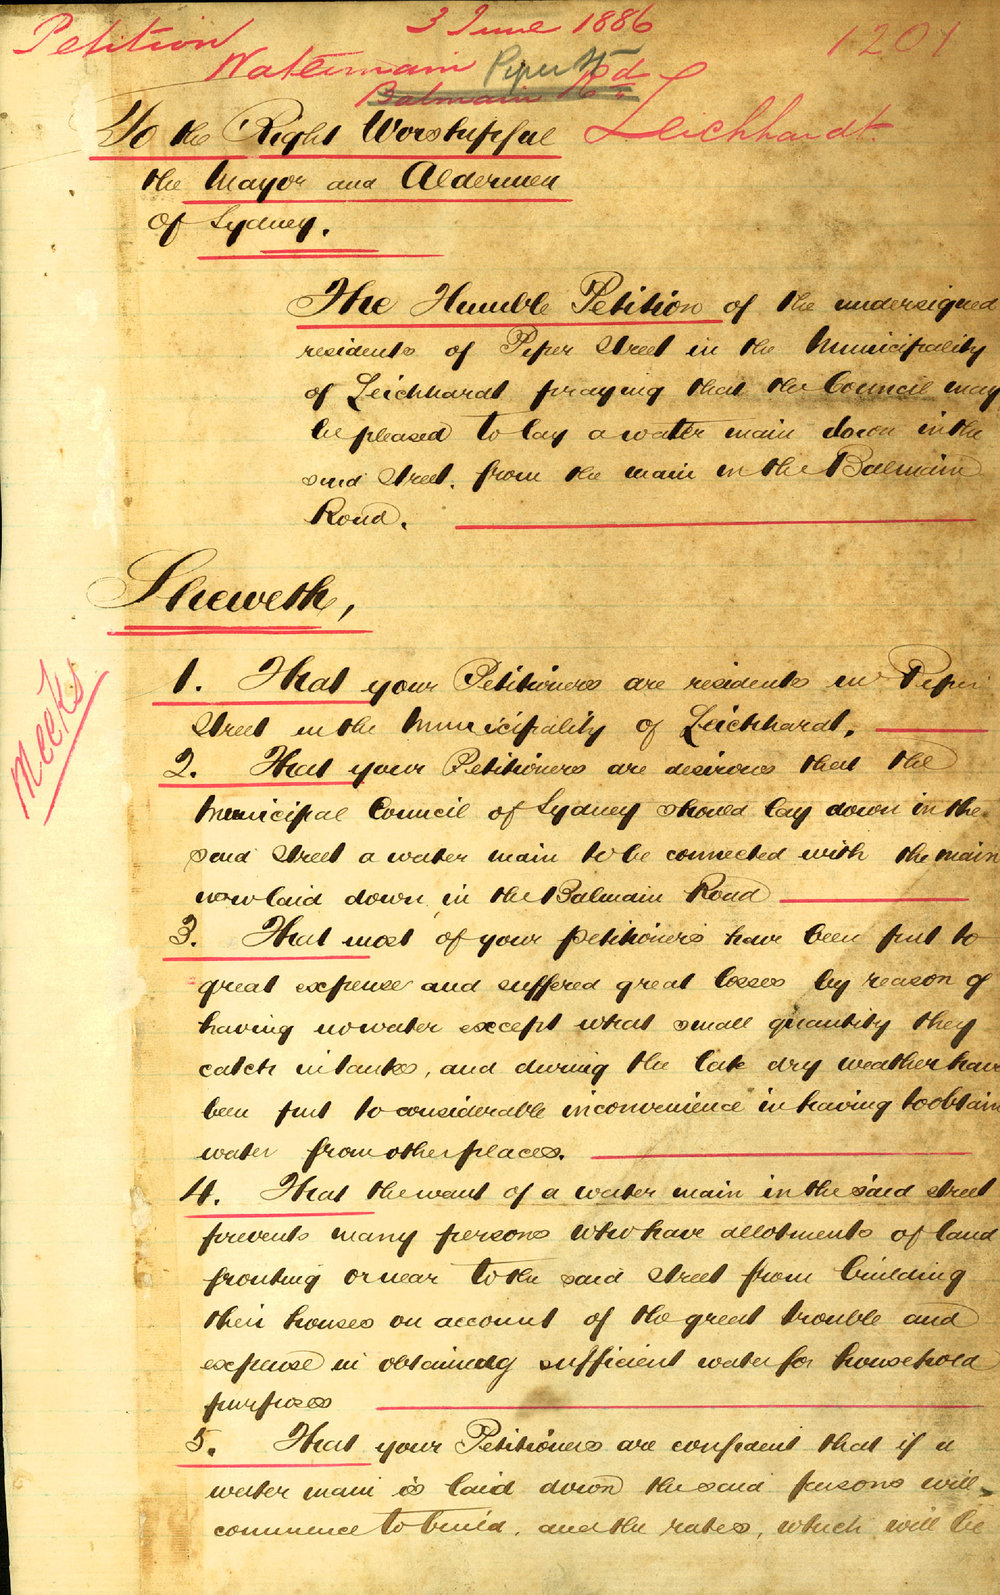 3 June 1886
Petition
1201
Watermain Piper St
Balmain Rd
Leichhardt
To the Right Worshipful
the Mayor and Aldermen
Of Sydney.
The Humble Petition of the undersigned
residents of Piper Street in the Municipality
of Leichhardt praying that the Council may
be pleased to lay a water main down in the
said Street. from the main in the Balmain
Road.
Sheweth,
Meeks
1. That your Petitioners are residents in Piper
Street in the Municipality of Leichhardt.
2. That your Petitioners are desirous that the
Municipal Council of Sydney should lay down in the
said Street a water main to be connected with the main
now laid down in the Balmain Road
3. That most of your petitioners have been put to
great expense and suffered great losses by reason of
having no water except what small quantity they
catch in tanks, and during the late dry weather have
been put to considerable inconvenience in having to obtain
water from other places.
4. That the want of a water main in the said street
prevents many persons who have allotments of land
fronting or near to the said Street from building
their houses on account of the great trouble and
expense in obtaining sufficient water for household
purposes
5. That your Petitioners are confident that if a
water main is laid down the said persons will
commence to build, and the rates, which will be